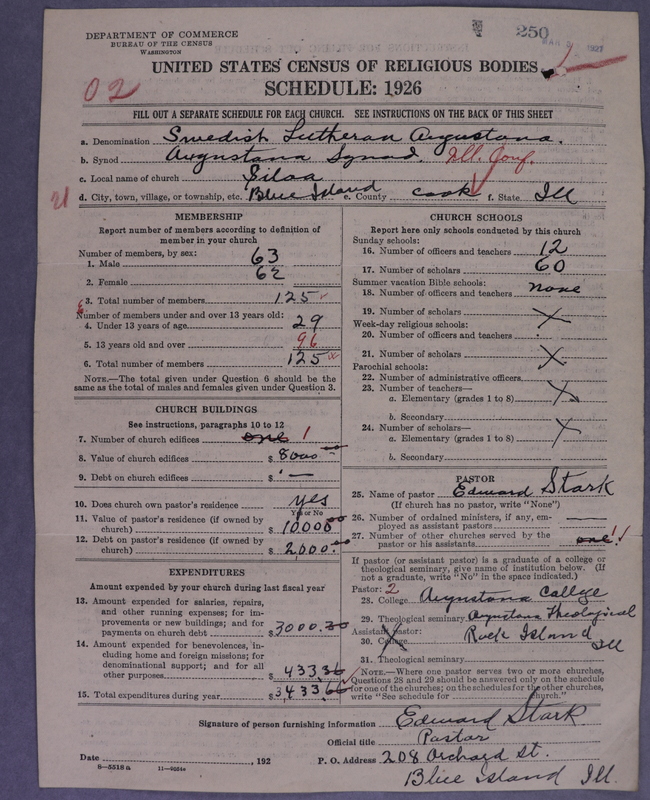 DEPARTMENT OF COMMERCE
BUREAU OF THE CENSUS
WASHINGTON
250
UNITED STATES CENSUS OF RELIGIOUS BODIES
SCHEDULE: 1926
02
FILL OUT A SEPARATE SCHEDULE FOR EACH CHURCH. SEE INSTRUCTIONS ON THE BACK OF THIS SHEET
a. Denomination Swedish Lutheran Augustana.
b. Synod Augustana Synod. Ill. Conf.
c. Local name of church Siloa
21
d. City, town, village, or township, etc. Blue Island e. County Cook f. State Ill
MEMBERSHIP
Report number of members according to definition of
member in your church
Number of members, by sex:
1. Male 63
2. Female 62
3. Total number of members 125
Number of members under and over 13 years old:
4. Under 13 years of age 29
5. 13 years old and over 96
6. Total number of members 125
NOTE.—The total given under Question 6 should be the
same as the total of males and females given under Question 3.
CHURCH BUILDINGS
See instructions, paragraphs 10 to 12
7. Number of church edifices one 1
8. Value of church edifices $ 8000
9. Debt on church edifices $ —
10. Does church own pastor's residence yes
Yes or No
11. Value of pastor's residence (if owned by
church) $ 10000.00
12. Debt on pastor's residence (if owned by
church) $ 2000.00
EXPENDITURES
Amount expended by your church during last fiscal year
13. Amount expended for salaries, repairs,
and other running expenses; for im-
provements or new buildings; and for
payments on church debt $ 3000.30
14. Amount expended for benevolences, in-
cluding home and foreign missions; for
denominational support; and for all
other purposes $ 433.36
15. Total expenditures during year $ 3433.66
CHURCH SCHOOLS
Report here only schools conducted by this church
Sunday schools:
16. Number of officers and teachers 12
17. Number of scholars 60
Summer vacation Bible schools:
18. Number of officers and teachers none
19. Number of scholars
Week-day religious schools:
20. Number of officers and teachers
21. Number of scholars
Parochial schools:
22. Number of administrative officers
23. Number of teachers—
a. Elementary (grades 1 to 8)
b. Secondary
24. Number of scholars—
a. Elementary (grades 1 to 8)
b. Secondary
PASTOR
25. Name of pastor Edward Stark
(If church has no pastor, write "None")
26. Number of ordained ministers, if any, em-
ployed as assistant pastors —
27. Number of other churches served by the
pastor or his assistants one 1
If pastor (or assistant pastor) is a graduate of a college or
theological seminary, give name of institution below. (If
not a graduate, write "No" in the space indicated.)
Pastor: 2
28. College Augustana College
29. Theological seminary Augustana Theological
Assistant pastor: Rock Island
30. College Ill
31. Theological seminary
NOTE.—Where one pastor serves two or more churches,
Questions 28 and 29 should be answered only on the schedule
for one of the churches; on the schedules for the other churches,
write "See schedule for church."
Signature of person furnishing information Edward Stark
Official title Pastor
Date , 192 P. O. Address 208 Orchard St.
8—5518 a
Blue Island Ill.